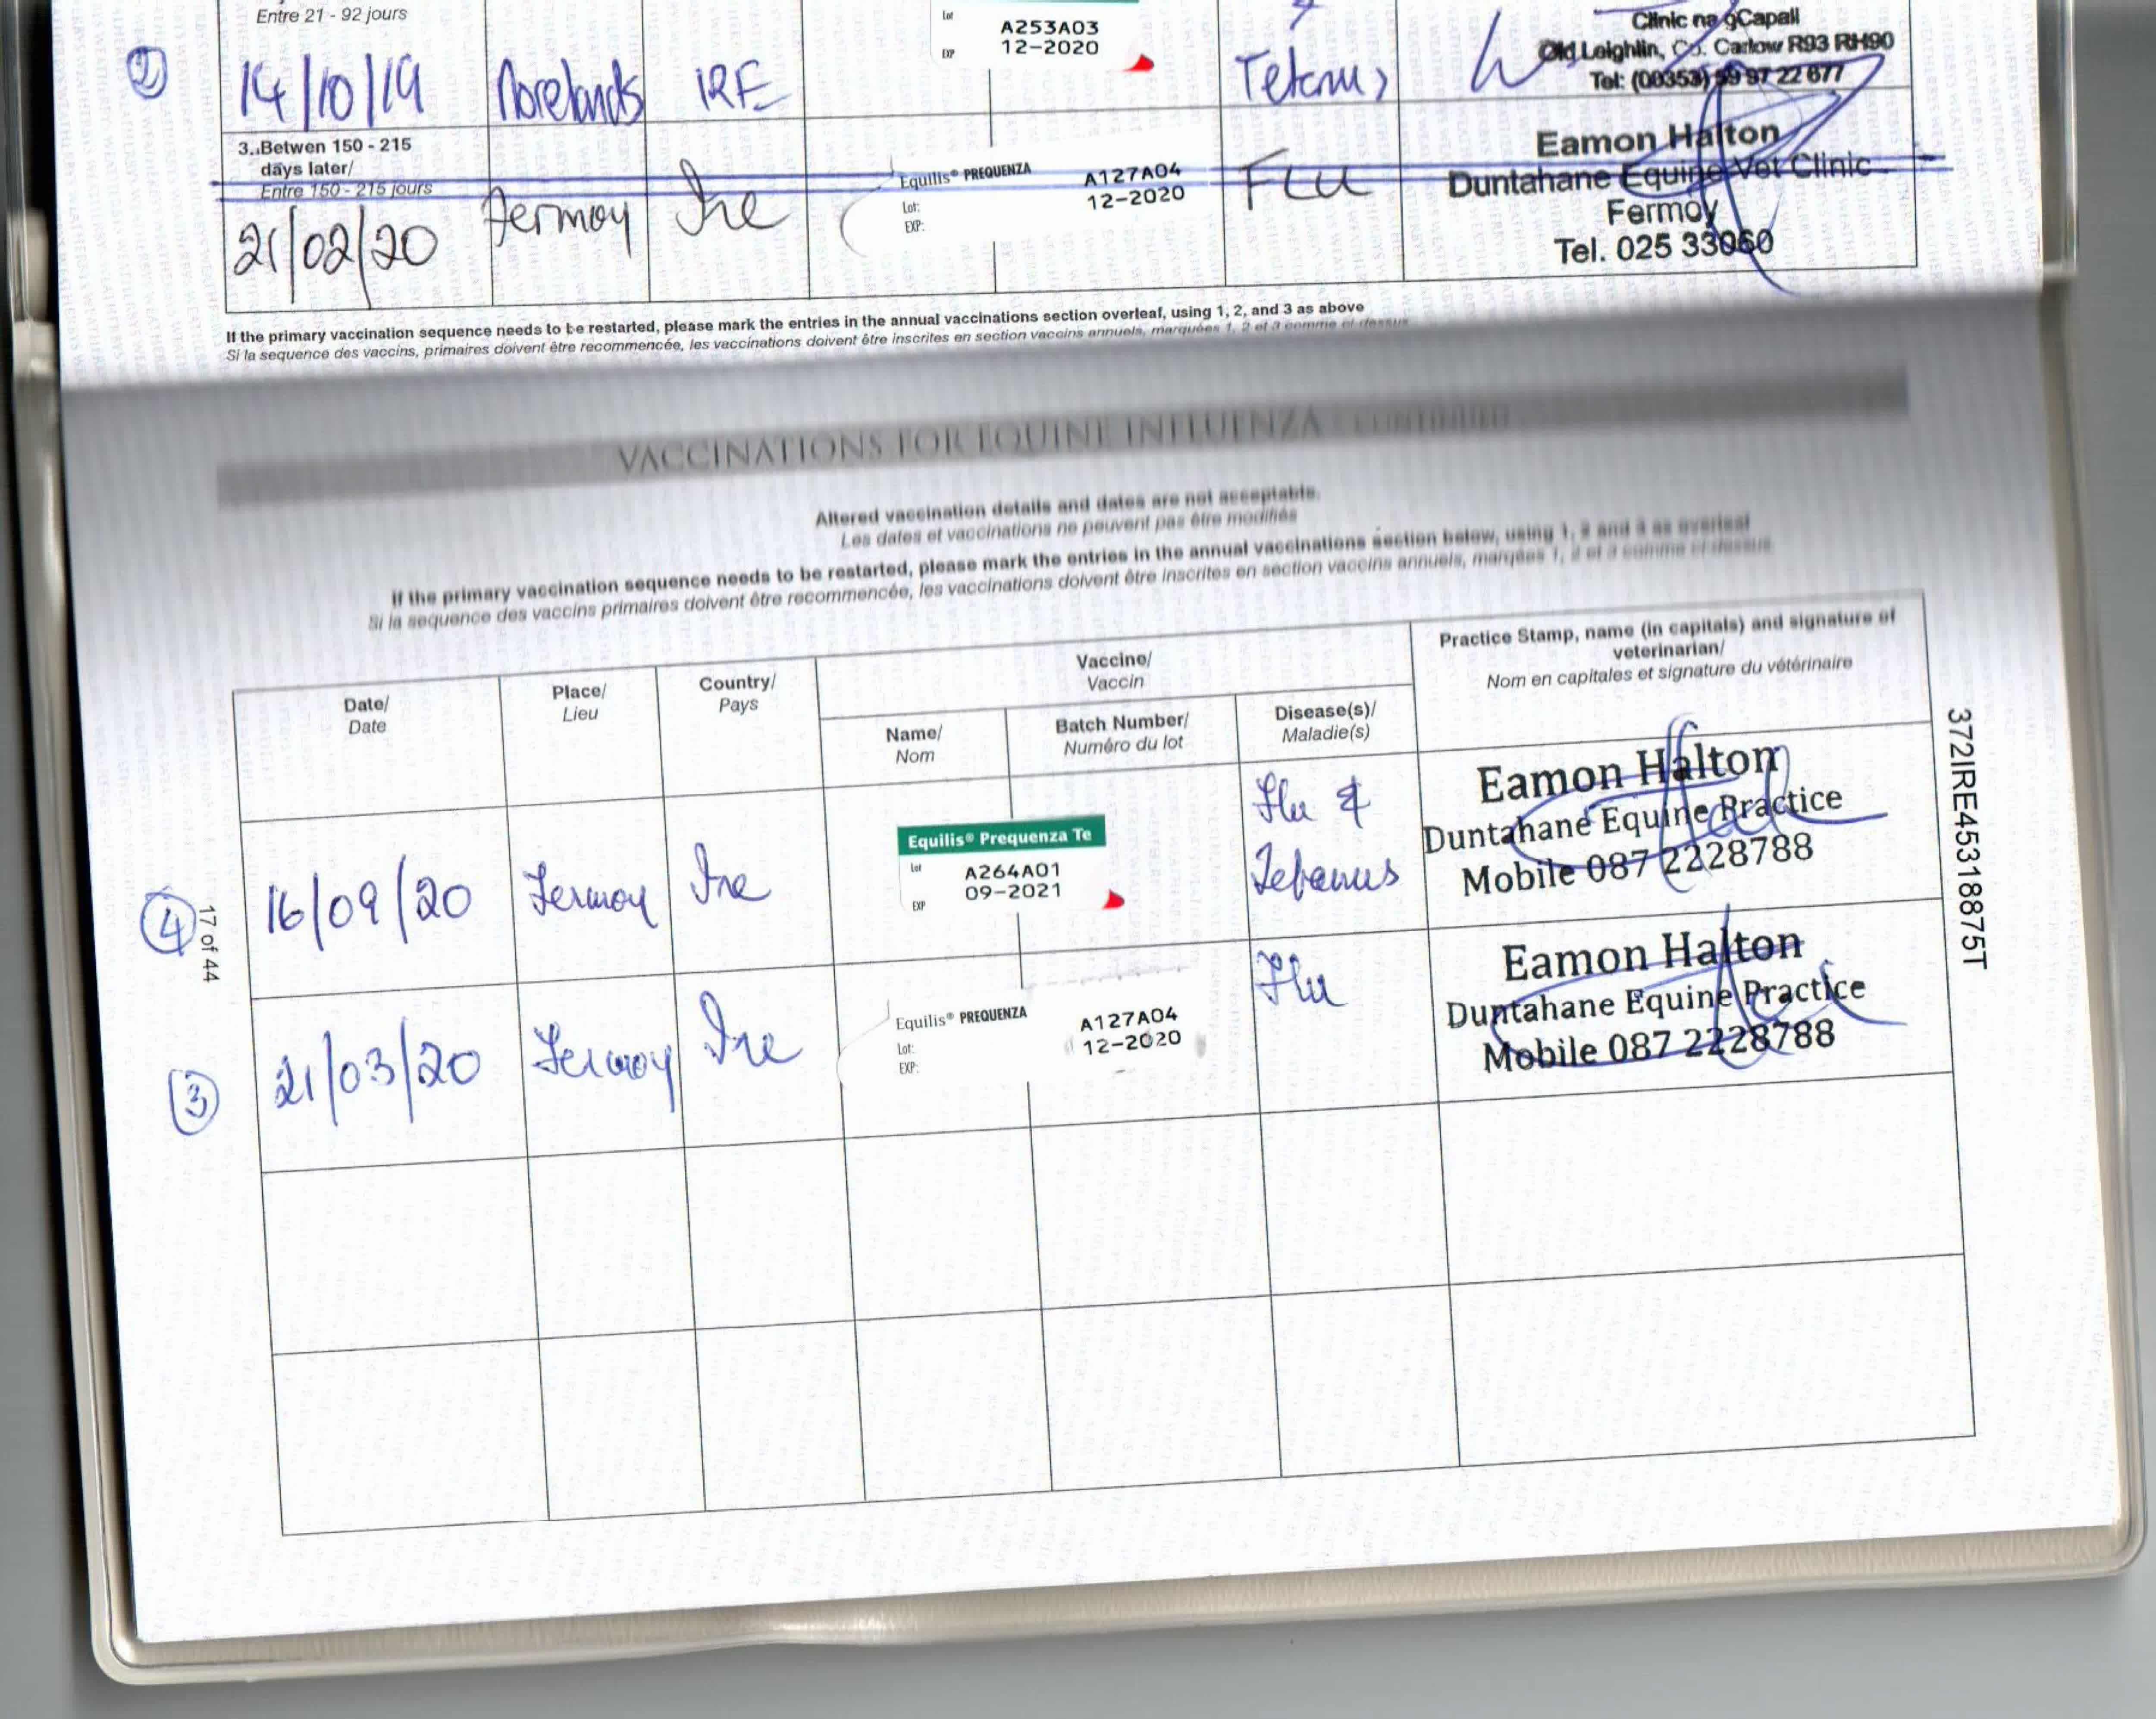 Entre 21 - 92 jours
2
14/10/19
Morelands
IRE
Lot
A253A03
EXP
12-2020
Tetanus
Clinic na gCapall
Old Leighlin, Co. Carlow R93 RH90
Tel: (00353) 59 97 22 677
3. Betwen 150 - 215
days later/
Entre 150 - 215 jours
21/02/20
Fermoy
Ire
Equilis® PREQUENZA
Lot:
EXP:
A127A04
12-2020
FLU
Eamon Halton
Duntahane Equine Vet Clinic
Fermoy
Tel. 025 33060
If the primary vaccination sequence needs to be restarted, please mark the entries in the annual vaccinations section overleaf, using 1, 2, and 3 as above
Si la sequence des vaccins, primaires doivent être recommencée, les vaccinations doivent être inscrites en section vaccins annuels, marquées 1, 2 et 3 comme ci dessus
VACCINATIONS FOR EQUINE INFLUENZA - CONTINUED
Altered vaccination details and dates are not acceptable.
Les dates et vaccinations ne peuvent pas être modifiés
If the primary vaccination sequence needs to be restarted, please mark the entries in the annual vaccinations section below, using 1, 2 and 3 as overleaf
Si la sequence des vaccins primaires doivent être recommencée, les vaccinations doivent être inscrites en section vaccins annuels, marqées 1, 2 et 3 comme ci dessus
Date/
Date
Place/
Lieu
Country/
Pays
Vaccine/
Vaccin
Name/
Nom
Batch Number/
Numéro du lot
Disease(s)/
Maladie(s)
Practice Stamp, name (in capitals) and signature of
veterinarian/
Nom en capitales et signature du vétérinaire
4
16/09/20
Fermoy
Ire
Equilis® Prequenza Te
Lot
A264A01
09-2021
EXP
Flu &
Tetanus
Eamon Halton
Duntahane Equine Practice
Mobile 087 2228788
3
21/03/20
Fermoy
Ire
Equilis® PREQUENZA
Lot:
EXP:
A127A04
12-2020
Flu
Eamon Halton
Duntahane Equine Practice
Mobile 087 2228788
17 of 44
372IRE45318875T